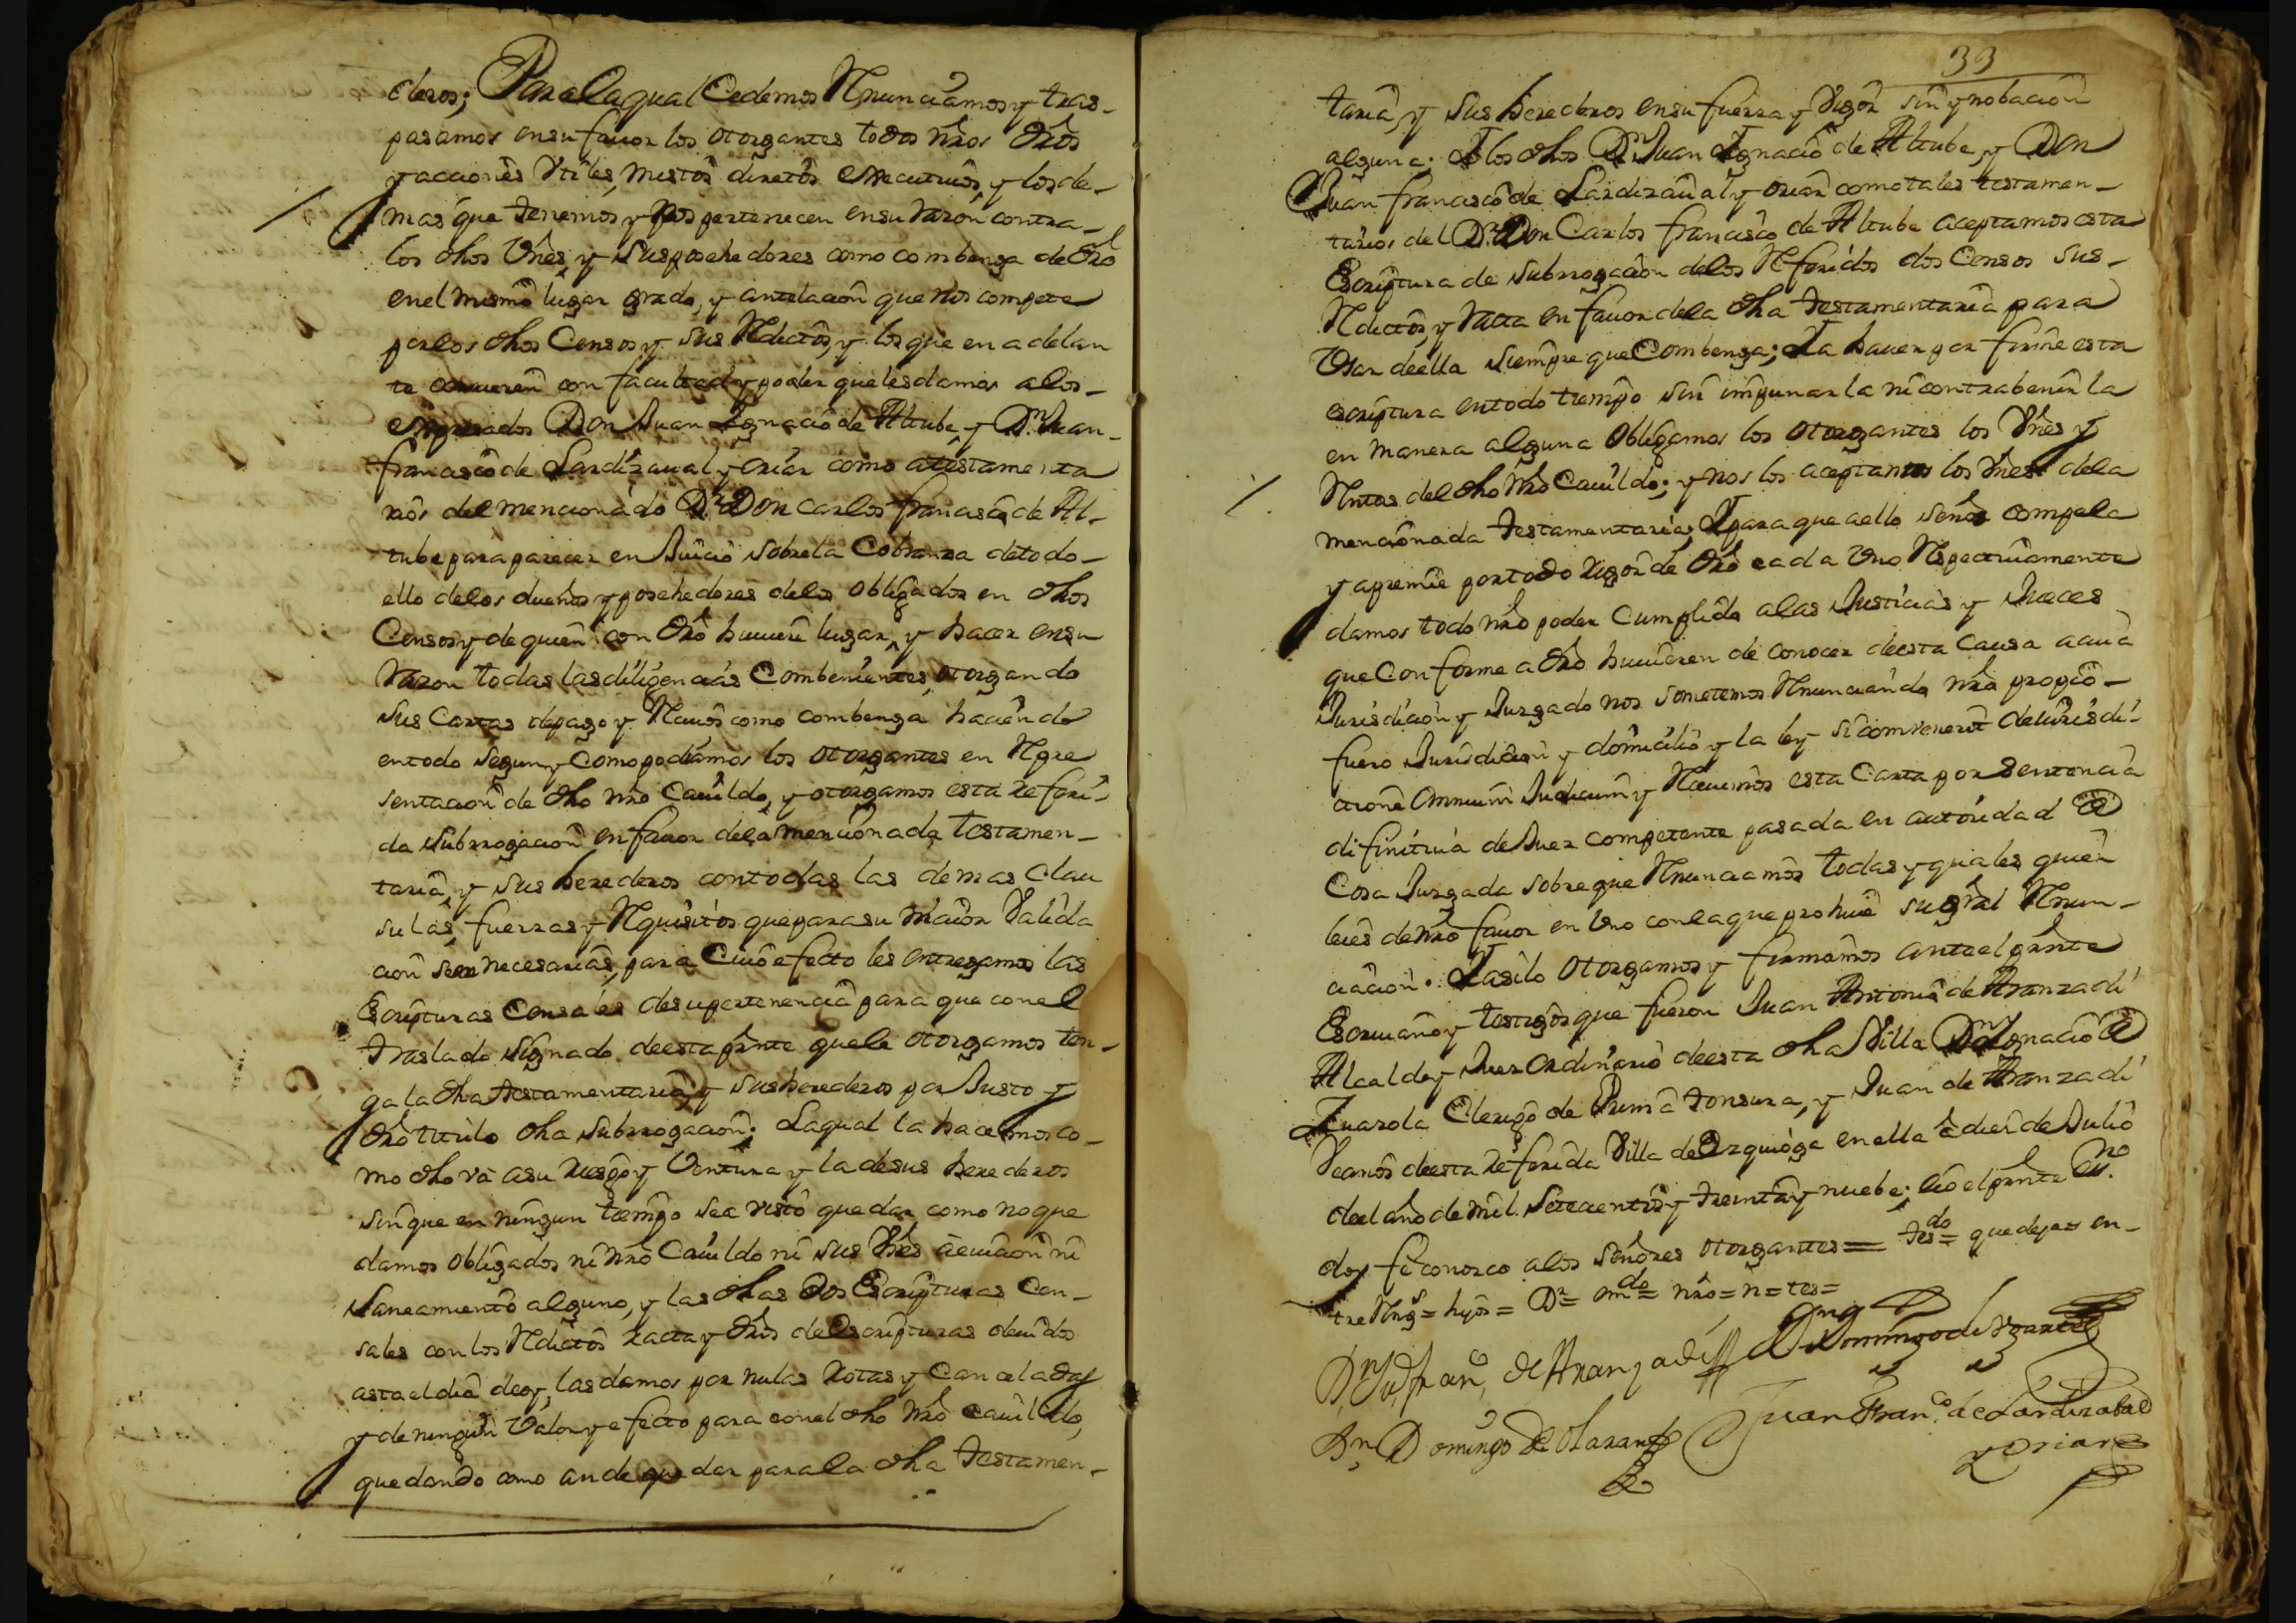 deros; Para la qual Cedemos Rnunciamos y tras-
pasamos en su fauor los otorgantes todos nros dros
y acciones Vtiles, mistos diretos executivos, y los de-
mas que tenemos y Nos pertenecen en su razon contra-
los dhos Vnes, y sus posehedores como combenga de dro
en el mismo lugar grado, y antelacion que nos compete
por los dhos Censos y sus Rditos, y los que en adelan
te corrieren con facultad y poder que les damos a los-
expresados Don Juan Ignacio de Altube, y Dn. Juan-
francisco de Lardizaual y oriar como a testamenta
rios del mencionado Dr. Don Carlos francisco de Al-
tube para parecer en Juicio sobre la Cobranza de todo-
ello de los dueños y posehedores de los obligados en dhos
Censos y de quien con dro huuiere lugar, y hacer en su
razon todas las diligencias Combenientes, otorgando
sus Cartas de pago y Rciuos como combenga haciendo
en todo segun y Como podiamos los otorgantes en Rpre
sentacion de dho nro Cauildo, y otorgamos esta referi-
da subrrogacion en fauor de la mencionada testamen-
taria, y sus herederos con todas las demas Clau
sulas, fuerzas y Rquisitos que para su maior Valida
cion sean necesarias, para Cuio efecto les entregamos las
Escripturas Censales de su pertenencia para que con el
traslado signado de esta presente que le otorgamos ten-
ga la dha testamentaria, y sus herederos por Justo y
dro titulo dha subrrogacion; La qual la hacemos co-
mo dho va a su riesgo y Ventura y la de sus herederos
sin que en ningun tiempo sea visto quedar como no que
damos obligados ni nro Cauildo ni sus Vnes a euicion ni
saneamiento alguno, y las dhas dos Escripturas Cen-
sales con los Rditos racta y dros de Escripturas deuidos
asta el dia de oy, las damos por nulas rotas y Canceladas
y de ningun Valor y efecto para con el dho nro Cauildo,
quedando como an de quedar para la dha testamen-
39
taria, y sus herederos en su fuerza y Vigor sin ynobacion
alguna. I los dhos Dn. Juan Ignacio de Altube, y Don
Juan francisco de Lardizaual y oriar como tales testamen-
tarios del Dr. Don Carlos francisco de Altube aceptamos esta
Escriptura de subrrogacion de los Rferidos dos Censos sus-
Rditos, y racta en fauor de la dha testamentaria para
Vsar de ella siempre que Combenga; I a hauer por firme esta
escriptura en todo tiempo sin impunar la ni contrabenir la
en manera alguna obligamos los otorgantes los Vnes y
Rntas del dho nro Cauildo; y nos los aceptantes los Vnes de la
mencionada testamentaria, I para que a ello se nos compela
y apremie por todo rigor de dro a cada Vno Rspectiuamente
damos todo nro poder Cumplido a las Justicias y Jueces
que Conforme a dro huuieren de conocer de esta Causa a cuia
Jurisdicion y Juzgado nos sometemos Rnunciando nro propio-
fuero Jurisdicion y domicilio y la ley si combenerit de Jurisdi-
cione omnium Judicum y Rceuimos esta Carta por sentencia
difinitiua de Juez competente pasada en autoridad de
Cosa Juzgada sobre que Rnunciamos todas y quales quier
leies de nro fauor en Vno con la que prohiue su gral Rnun-
ciacion. I asi lo otorgamos y firmamos ante el presente
Escriuano y testigos que fueron Juan Antonio de Aranzadi
Alcalde y Juez ordinario de esta dha Villa Dn. Ignacio de
Zuazola Clerigo de Prima tonsura, y Juan de Aranzadi
Vecinos de esta referida Villa de Ezquioga en ella a diez de Julio
de el año de mil Setecientos y treinta y nuebe; e io el presente Esno.
doy fe conozco a los señores otorgantes = tesdo = que dejar en-
tre Rngs = hijos = Dr = = nro = n = tes =
Dn. Ju fran.co de Aranzadi
Domingo de
Dn. Domingo de Olaran
Juan Fran.co de Lardizabal
y oriar